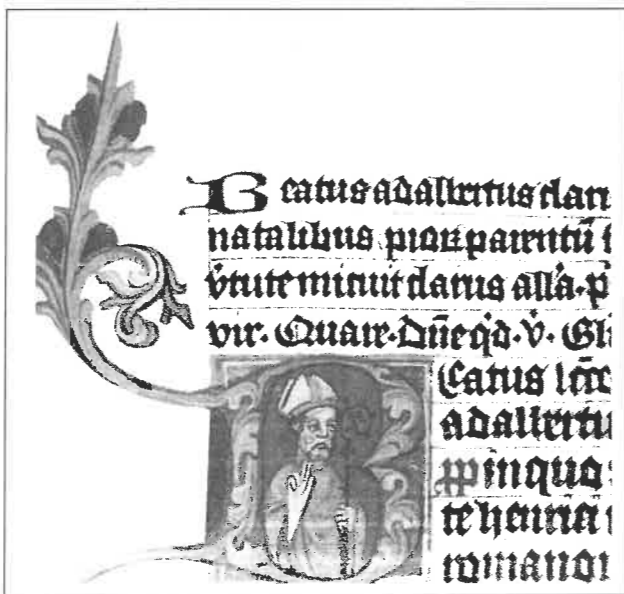 Beatus adalbertus clari
natalibus piorum parentū
v̓tute minuit clarus all̓a. p
vir. Quare. Dn̄e qd̓. v̓. Gl
Eatus
adalbertu
inquo
te henria
romanor